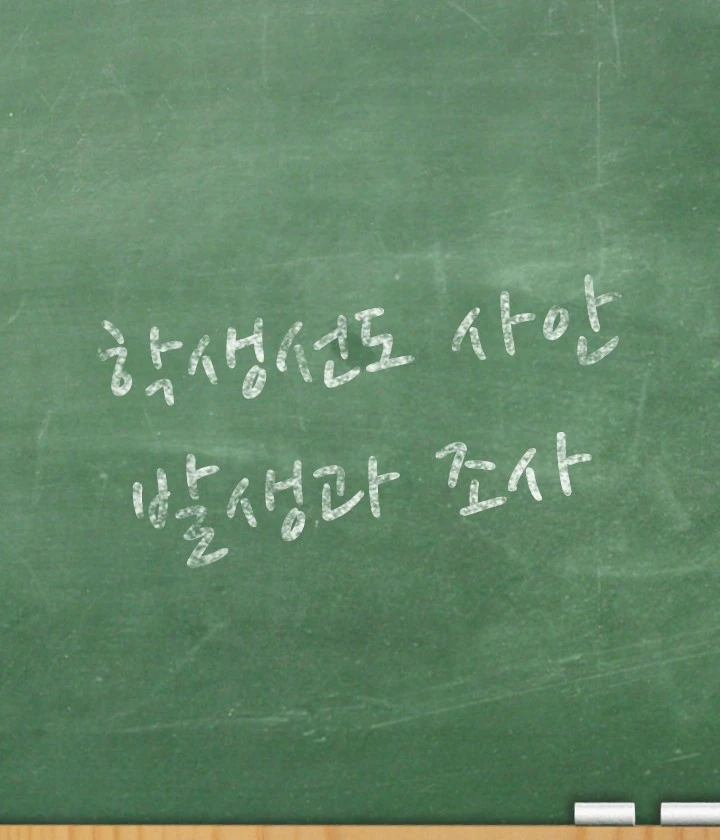 학생선도 사안
발생과 조사